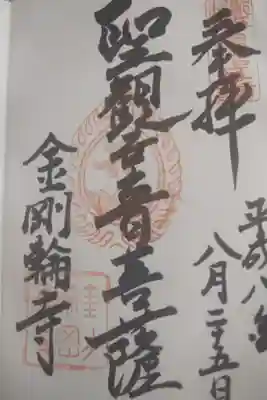 奉拝
平成八年
八月二十五日
聖観世音菩薩
金剛輪寺